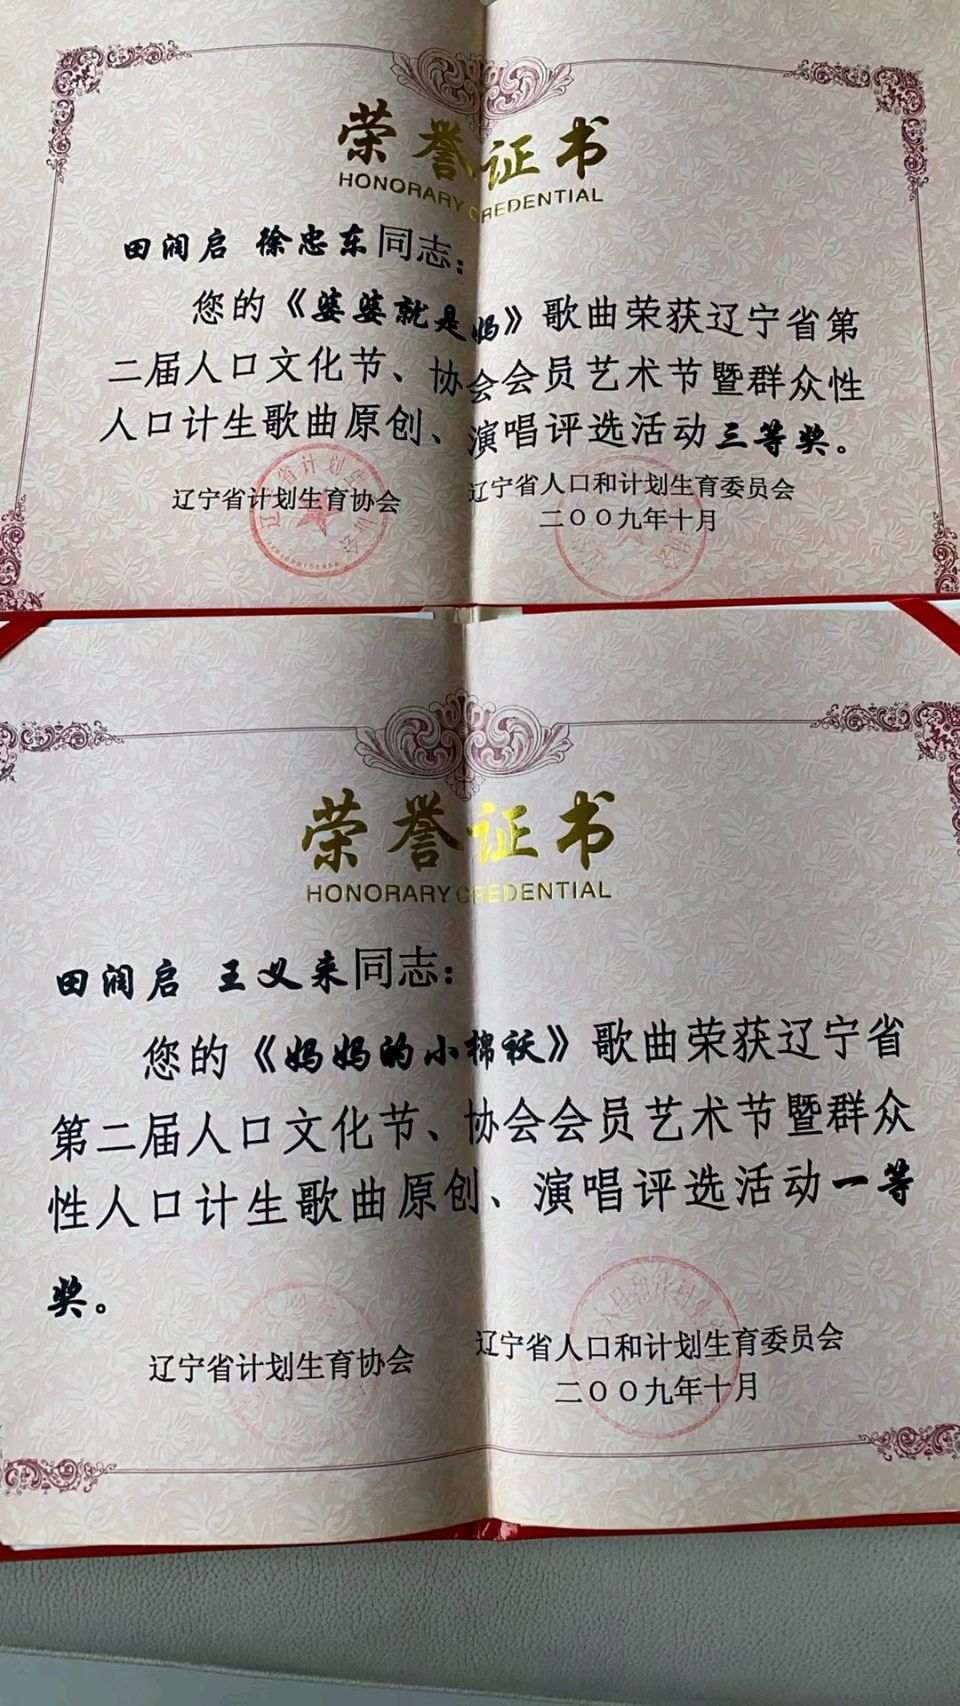 荣誉证书
HONORARY CREDENTIAL
田润启 徐忠东同志：
您的《婆婆就是妈》歌曲荣获辽宁省第
二届人口文化节、协会会员艺术节暨群众性
人口计生歌曲原创、演唱评选活动三等奖。
辽宁省计划生育协会
辽宁省人口和计划生育委员会
二〇〇九年十月
荣誉证书
HONORARY CREDENTIAL
田润启 王义来同志：
您的《妈妈的小棉袄》歌曲荣获辽宁省
第二届人口文化节、协会会员艺术节暨群众
性人口计生歌曲原创、演唱评选活动一等
奖。
辽宁省计划生育协会
辽宁省人口和计划生育委员会
二〇〇九年十月